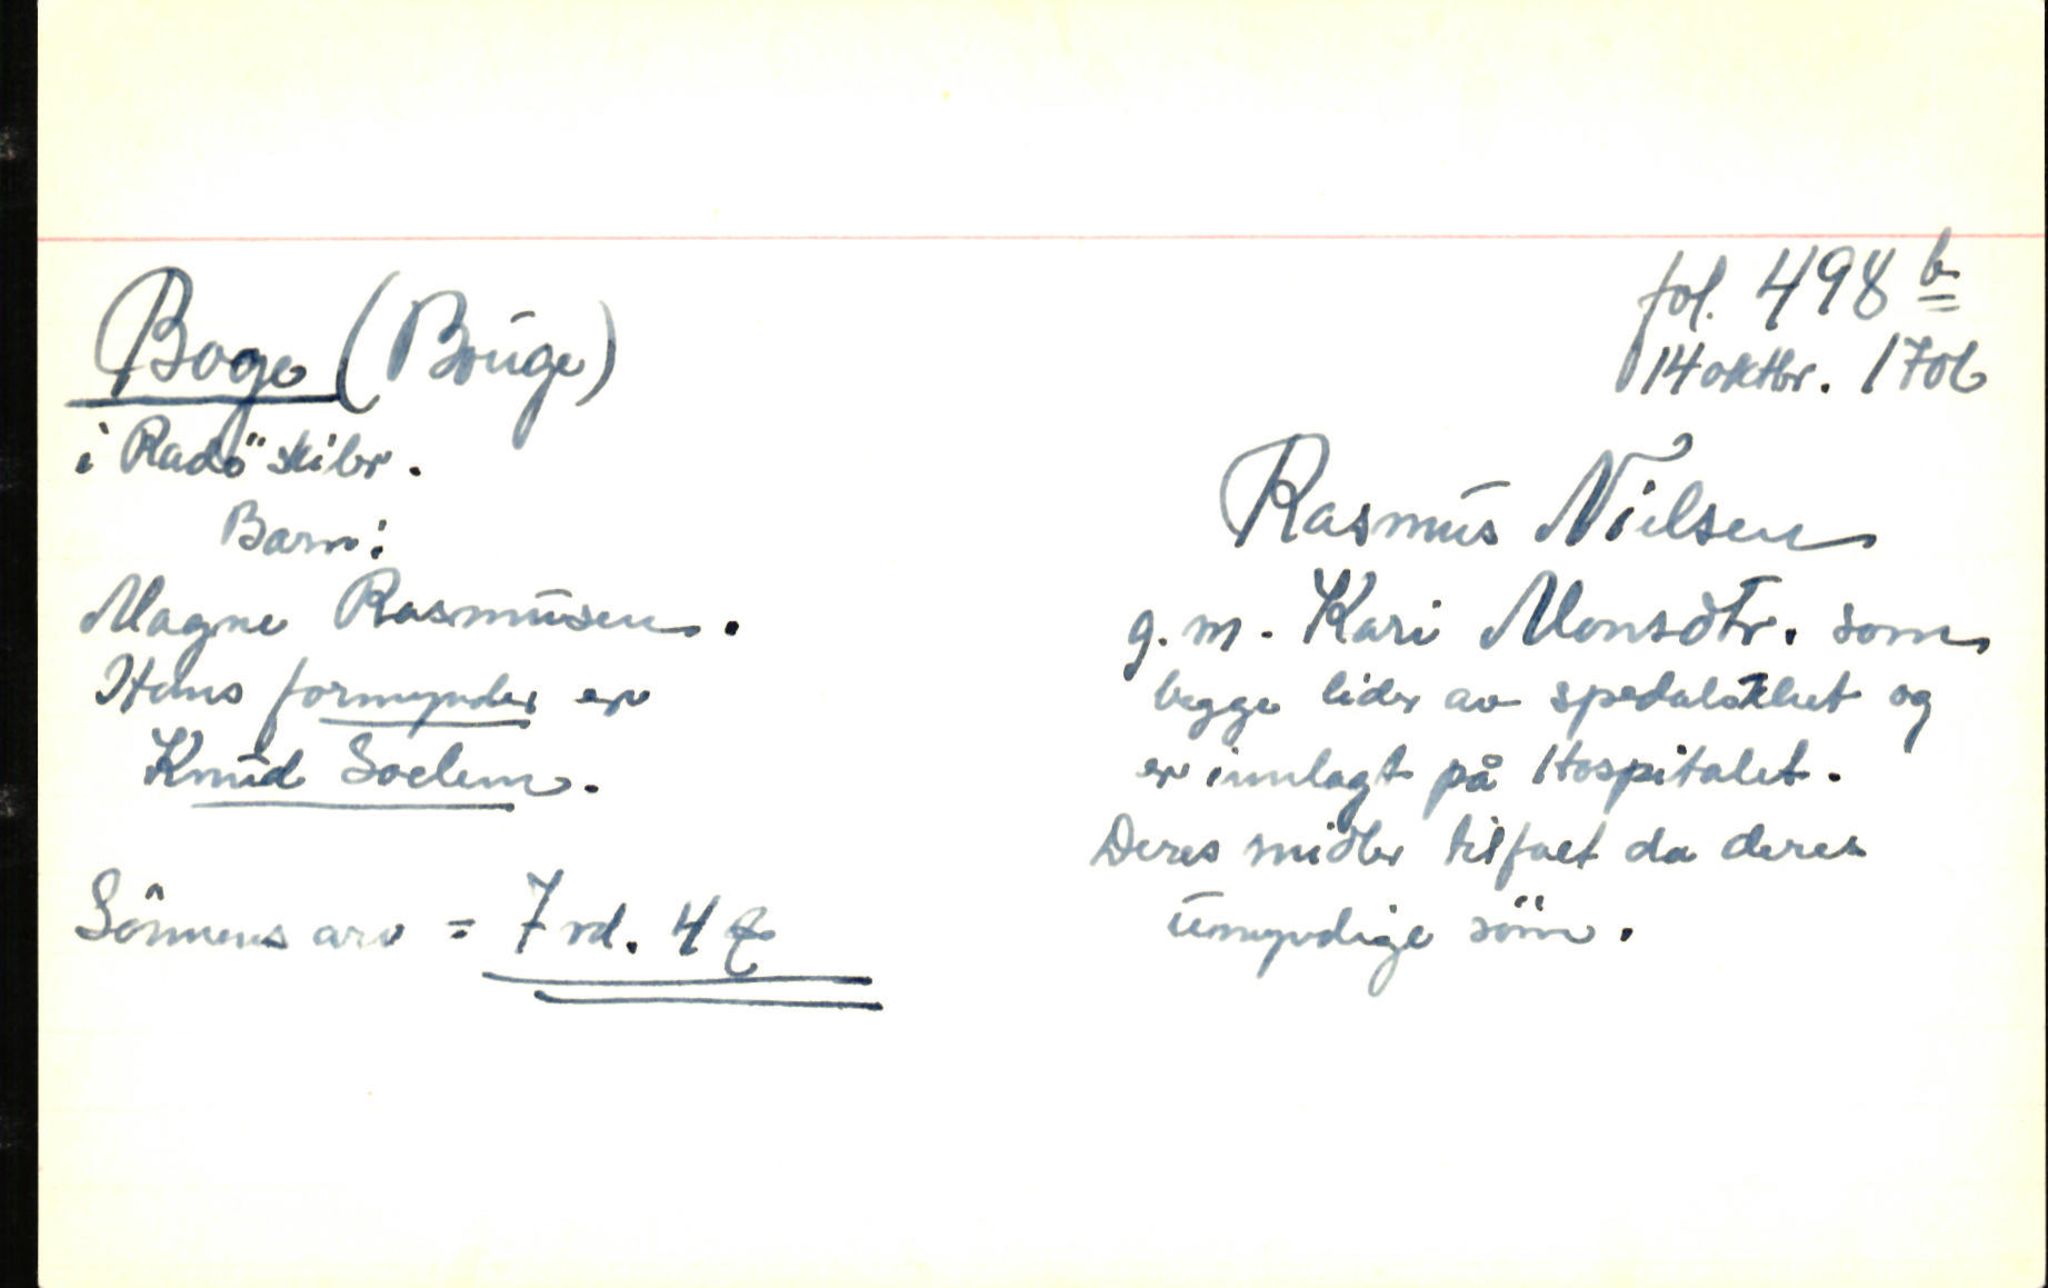 Boge (Bouge)
i Radö skibr.
Barn:
Magne Rasmusen.
Hans formynder er
Knud Soelem.
Sönnens arv = 7 rd. 4
fol. 498 b
14 oktbr. 1706
Rasmus Nielsen
g. m. Kari Monsdtr. som
begge lider av spedalskhet og
er innlagt på Hospitalet.
Deres midler tilfalt da deres
umyndige sön.